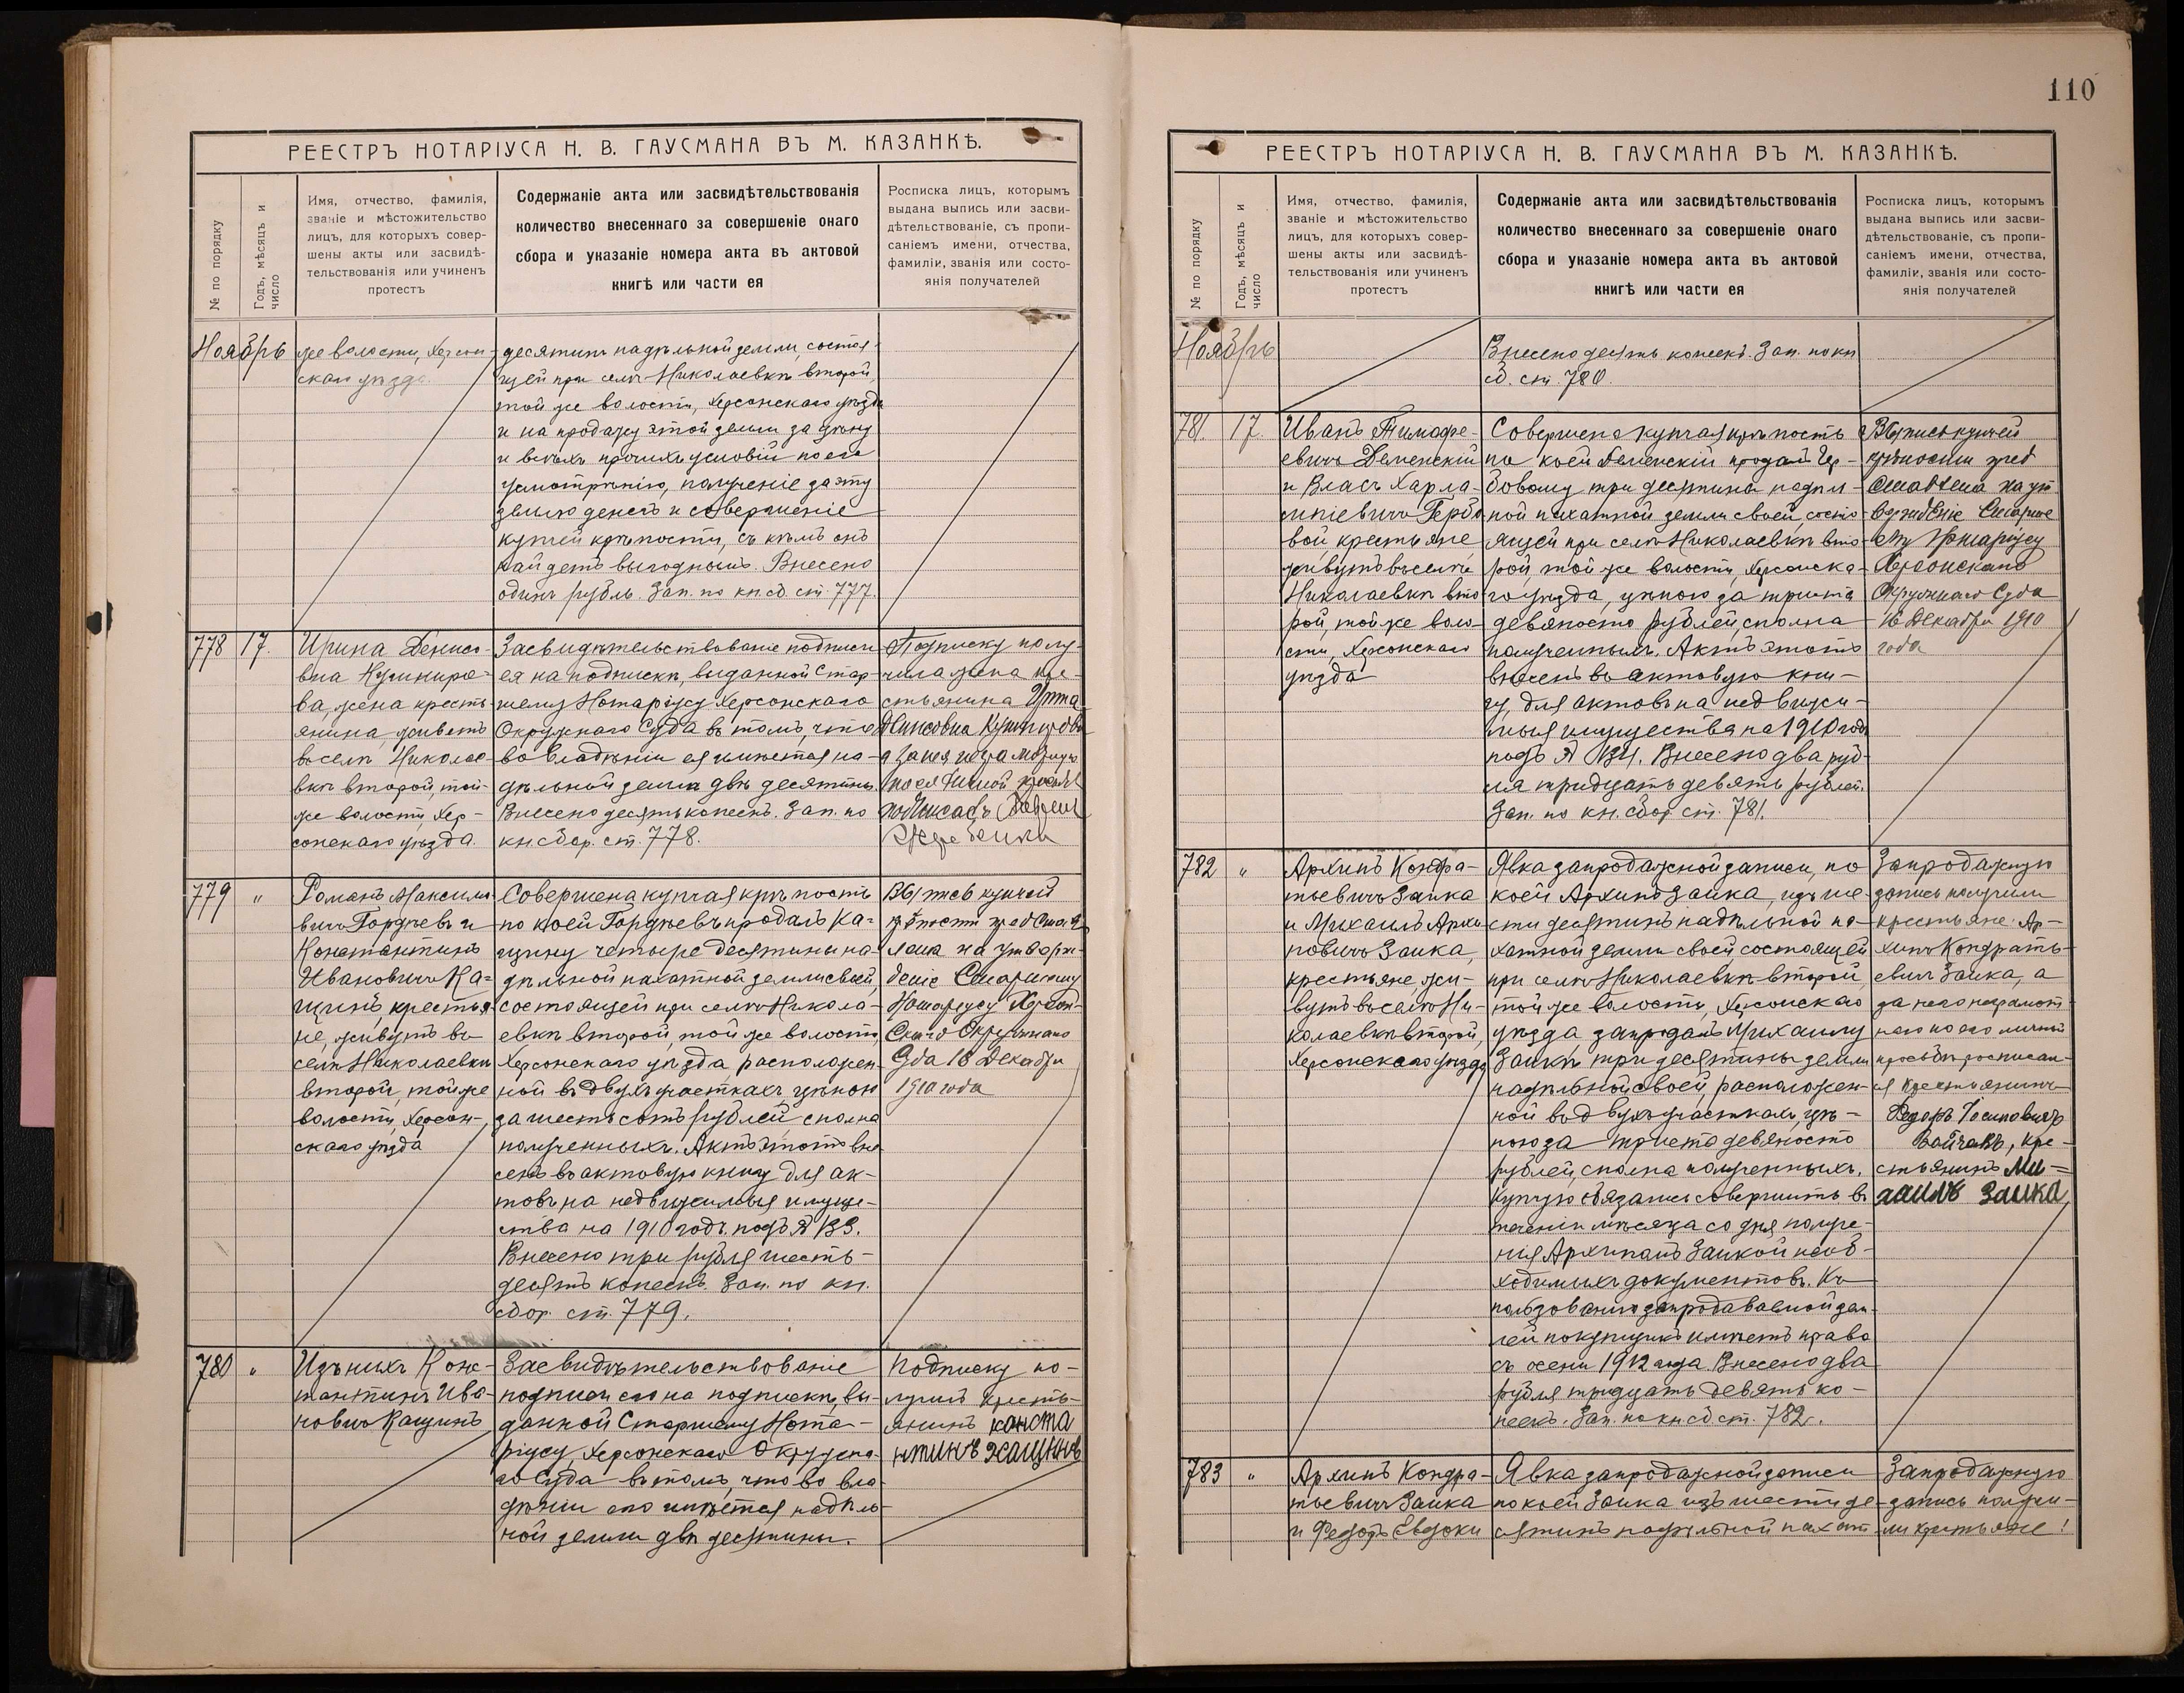 РЕЕСТРЪ НОТАРІУСА Н. В. ГАУСМАНА ВЪ М. КАЗАНКѢ.
№ по порядку
Годъ, мѣсяцъ и
число
Имя, отчество, фамилія,
званіе и мѣстожительство
лицъ, для которыхъ совер-
шены акты или засвидѣ-
тельствованія или учиненъ
протестъ
Содержаніе акта или засвидѣтельствованія
количество внесеннаго за совершеніе онаго
сбора и указаніе номера акта въ актовой
книгѣ или части ея
Росписка лицъ, которымъ
выдана выпись или засви-
дѣтельствованіе, съ пропи-
саніемъ имени, отчества,
фамиліи, званія или состо-
янія получателей
Ноябрь
же волости, Херсон-
скаго уѣзда.
десятинъ надѣльной земли, состоя-
щей при селѣ Николаевкѣ второй,
той же волости, Херсонскаго уѣзда
и на продажу этой земли за цѣну
и всѣхъ прочихъ условій по его
усмотрѣнію, полученіе за эту
землю денегъ и совершеніе
купчей крѣпости, съ кѣмъ онъ
найдетъ выгоднымъ. Внесено
одинъ рубль. Зап. по кн. сб. ст. 777.
778
17.
Ирина Денисо-
вна Кушниро-
ва, жена кресть-
янина, живетъ
въ селѣ Николае-
вкѣ второй, той-
же волости, Хер-
сонскаго уѣзда.
Засвидѣтельствованіе подписи
ея на подпискѣ, выданной Стар-
шему Нотаріусу Херсонскаго
Окружнаго Суда въ томъ, что
во владѣніи ея имѣется на-
дѣльной земли двѣ десятины.
Внесено десять копеекъ. Зап. по
кн. сбор. ст. 778.
Подписку полу-
чила жена кре-
стьянина
779
"
Романъ Максимо-
вичъ Гордѣевъ и
Константинъ
Ивановичъ Ка-
щинъ, крестья-
не, живутъ въ
селѣ Николаевкѣ
второй, той же
волости, Херсон-
скаго уѣзда
Совершена купчая крѣпость
по коей Гордѣевъ продалъ Ка-
щину четыре десятины на-
дѣльной пахатной земли своей,
состоящей при селѣ Никола-
евкѣ второй, той же волости,
Херсонскаго уѣзда, расположен-
ной въ двухъ участкахъ, цѣною
за шестьсотъ рублей, сполна
полученныхъ. Актъ этотъ вне-
сенъ въ актовую книгу для ак-
товъ на недвижимыя имуще-
ства на 1910 годъ подъ № 133.
Внесено три рубля шесть-
десятъ копеекъ. Зап. по кн.
сбор. ст. 779.
Выпись купчей
крѣпости представ-
лена на утверж-
деніе Старшему
Нотаріусу Херсон-
скаго Окружнаго
Суда 16 Декабря
1910 года
780
"
Изъ нихъ Конс-
тантинъ Ива-
новичъ Кащинъ
Засвидѣтельствованіе
подписи его на подпискѣ, вы-
данной Старшему Нота-
ріусу Херсонскаго Окружна-
го Суда въ томъ, что во вла-
дѣніи его имѣется надѣль-
ной земли двѣ десятины.
Подписку по-
лучилъ кресть-
янинъ конста
нтинъ кащинъ
110
РЕЕСТРЪ НОТАРІУСА Н. В. ГАУСМАНА ВЪ М. КАЗАНКѢ.
№ по порядку
Годъ, мѣсяцъ и
число
Имя, отчество, фамилія,
званіе и мѣстожительство
лицъ, для которыхъ совер-
шены акты или засвидѣ-
тельствованія или учиненъ
протестъ
Содержаніе акта или засвидѣтельствованія
количество внесеннаго за совершеніе онаго
сбора и указаніе номера акта въ актовой
книгѣ или части ея
Росписка лицъ, которымъ
выдана выпись или засви-
дѣтельствованіе, съ пропи-
саніемъ имени, отчества,
фамиліи, званія или состо-
янія получателей
Ноябрь
Внесено десять копеекъ. Зап. по кн
сб. ст. 780.
781.
17.
Иванъ Тимофе-
евичъ Деменскій
и Власъ Харла-
мпіевичъ Гербо
вой, крестьяне,
живутъ въ селѣ
Николаевкѣ вто
рой, той же воло-
сти, Херсонскаго
уѣзда
Совершена купчая крѣпость
по коей Деменскій продалъ Гер-
бовому три десятины надѣль-
ной пахатной земли своей, состо-
ящей при селѣ Николаевкѣ вто-
рой, той же волости, Херсонска-
го уѣзда, цѣною за триста
девяносто рублей, сполна
полученныхъ. Актъ этотъ
внесенъ въ актовую кни-
гу для актовъ на недвижи-
мыя имущества на 1910 годъ
подъ № 134. Внесено два руб-
ля тридцать девять рублей.
Зап. по кн. сбор. ст. 781.
Выпись купчей
крѣпости пред
ставлена на ут
вержденіе Старше
му Нотаріусу
Херсонскаго
Окружнаго Суда
16 Декабря 1910
года
782
"
Архипъ Кондра-
тьевичъ Заика
и Михаилъ Архи-
повичъ Заика,
крестьяне, жи-
вутъ въ селѣ Ни-
колаевкѣ второй,
Херсонскаго уѣзда
Явка запродажной записи, по
коей Архипъ Заика, изъ ше-
сти десятинъ надѣльной па-
хатной земли своей состоящей
при селѣ Николаевкѣ второй,
той же волости, Херсонскаго
уѣзда запродалъ Михаилу
Заикѣ три десятины земли
надѣльной своей, расположен-
ной въ двухъ участкахъ, цѣ-
ною за триста девяносто
рублей, сполна полученныхъ.
Купчую обязались совершить въ
теченіи мѣсяца со дня получе-
нія Архипомъ Заикой необ-
ходимыхъ документовъ. Къ
пользованію запродаваемой зем-
лей покупщикъ имѣетъ право
съ осени 1912 года. Внесено два
рубля тридцать девять ко-
пеекъ. Зап. по кн сб. ст. 782.
Запродажную
запись получили
крестьяне: Ар-
хипъ Кондрать-
евичъ Заика, а
за него неграмот-
наго по его личной
просьбѣ росписал-
ся крестьянинъ
Федоръ Іосиповичъ
Войчакъ, кре-
стьянинъ Ми-
хаилъ Заика
783
"
Архипъ Кондра-
тьевичъ Заика
и Федотъ Евдоки
Явка запродажной записи
по коей Заика изъ шести де-
сятинъ надѣльной пахат
Запродажную
запись получи-
ли крестьяне: